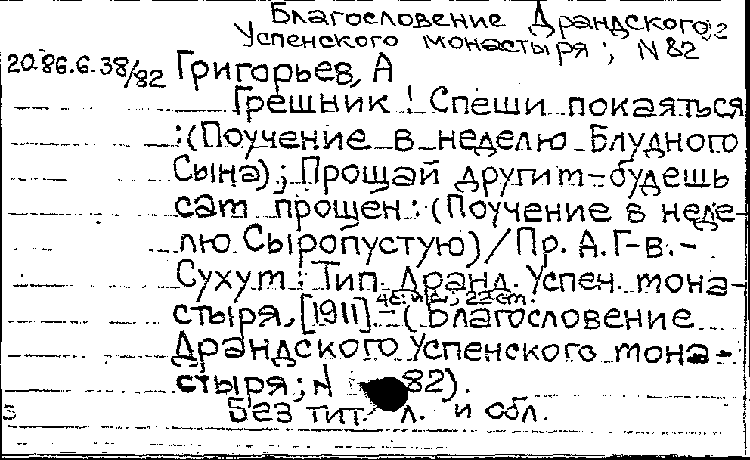 Благословение Драндского
Успенского монастыря; N 82
20.86.6.38/82 Григорьев, А
Грешник! Спеши покаяться
:(Поучение в неделю Блудного
Сына); Прощай другим - будешь
сам прощен: (Поучение в неде-
лю Сыропустую)/Пр. А. Г-в. -
Сухум: Тип. Дранд. Успен. мона-
стыря, [1911]. - 4 с.; 22 см. (Благословение
Драндского Успенского мона-
стыря; N 82).
Без тит. л. и обл.